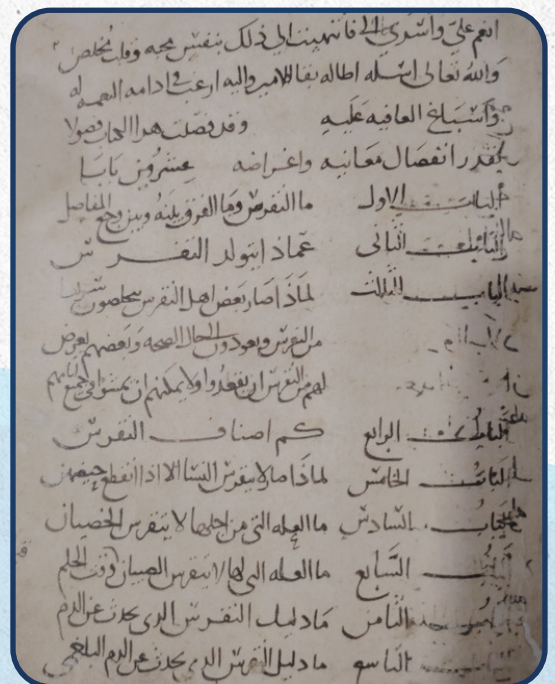 انعم علي واشوى الى فانتهيت الى ذلك بنفس محبه وقلب مخلص
والله تعالى اسله اطاله بقا الامير واليه ارغب في ادامه النعمه له
واسباغ العافيه عليه وقد فصلت هدا الكتاب فصولا
بقدر انفصال معانيه واغراضه عشرون بابا
الباب الاول ما النقرس وما الفرق بينه وبين وجع المفاصل
الباب الثانى عماذا يتولد النقرس
الباب الثالث لماذا صار بعض اهل النقرس يتخلصون
من النقرس ويعودون الى الحال الصحه وبعضهم يعرض
لهم من النقرس ان يقعدوا ولا يمكنهم ان يمشوا في جميع
الباب الرابع كم اصناف النقرس
الباب الخامس لماذا صار لا ينقرس النسا الا اذا انقطع حيضهن
الباب السادس ما العله التى من اجلها لا ينقرس الخصيان
الباب السابع ما العله التى لها لا ينقرس الصبيان وقت الحلم
الثامن ما دليل النقرس الدى يحدث عن الدم
التاسع ما دليل النقرس الدى يحدث عن الدم البلغمي